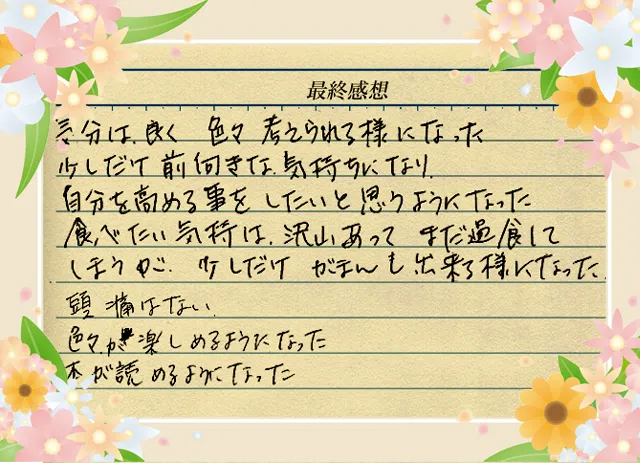 最終感想
気分は、良く 色々 考えられる様になった
少しだけ 前向きな、気持ちになり、
自分を高める事を したいと思うようになった
食べたい気持は、沢山あって まだ過食して
しまうが、少しだけ がまんも出来る様になった。
頭痛はない、
色々が楽しめるようになった
本が読めるようになった